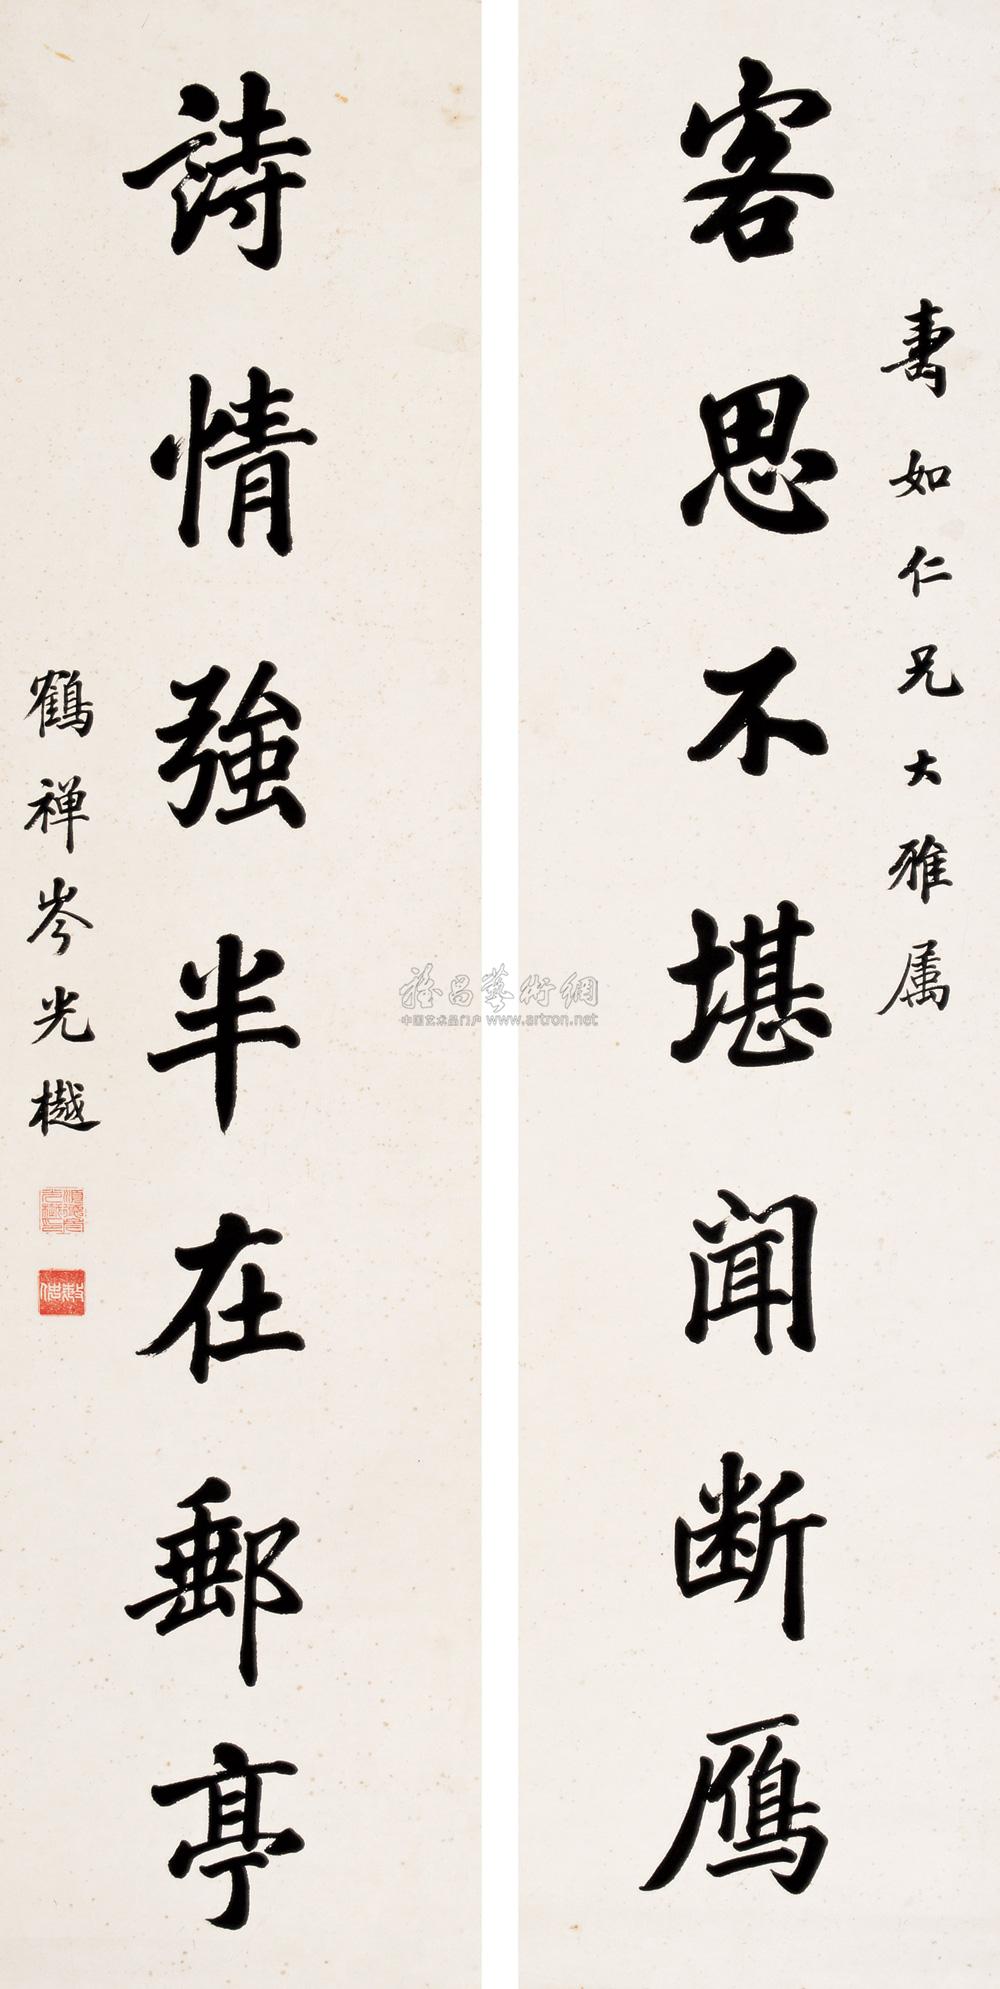 壽如仁兄大雅属
客思不堪闻断鴈
詩情強半在郵亭
鶴禅岑光樾
雅昌藝術網
中国艺术品门户 www.artron.net